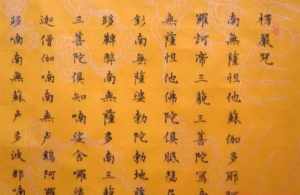 楞嚴咒
南無薩怛他蘇伽多耶
囉訶帝三藐三菩陀
無薩怛他佛陀俱胝瑟
南無薩婆勃陀勃地
跢鞞南無薩多南三
三菩陀俱知喃娑舍囉
迦僧伽喃南無盧雞阿
跢喃南無蘇盧多波那